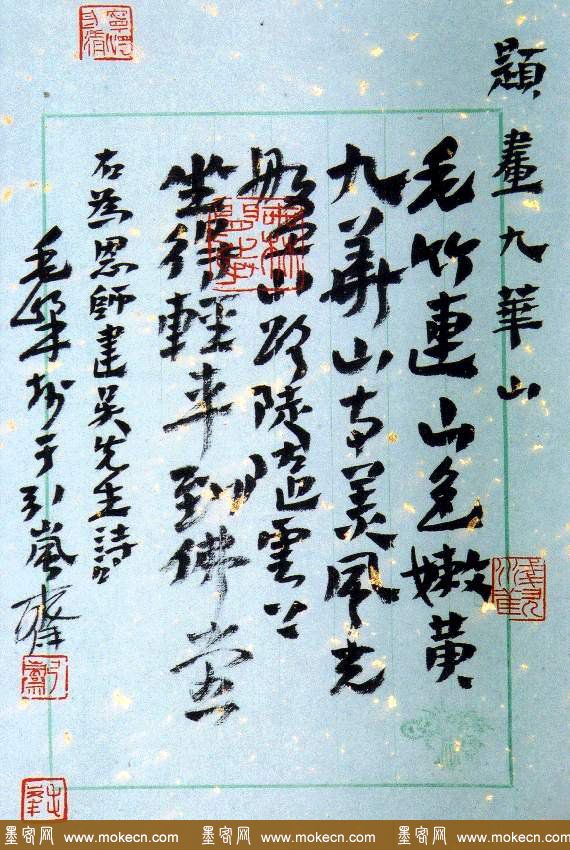 題畫九華山
毛竹連山色嫩黄
九華山寺美風光
盤山路陡雲上
坐得輕車到佛堂
右為恩師建吳先生詩
毛峯于引嵐齋
墨客网 www.mokecn.com 墨客网 www.mokecn.com 墨客网 www.mokecn.com